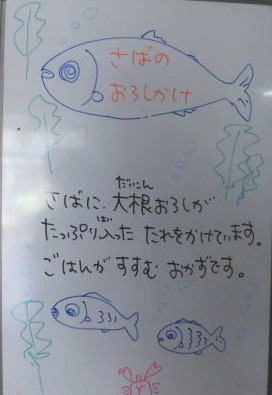 さばの
おろしかけ
だいこん
さばに、大根おろしが
たっぷり入った たれをかけています。
ごはんがすすむ おかずです。